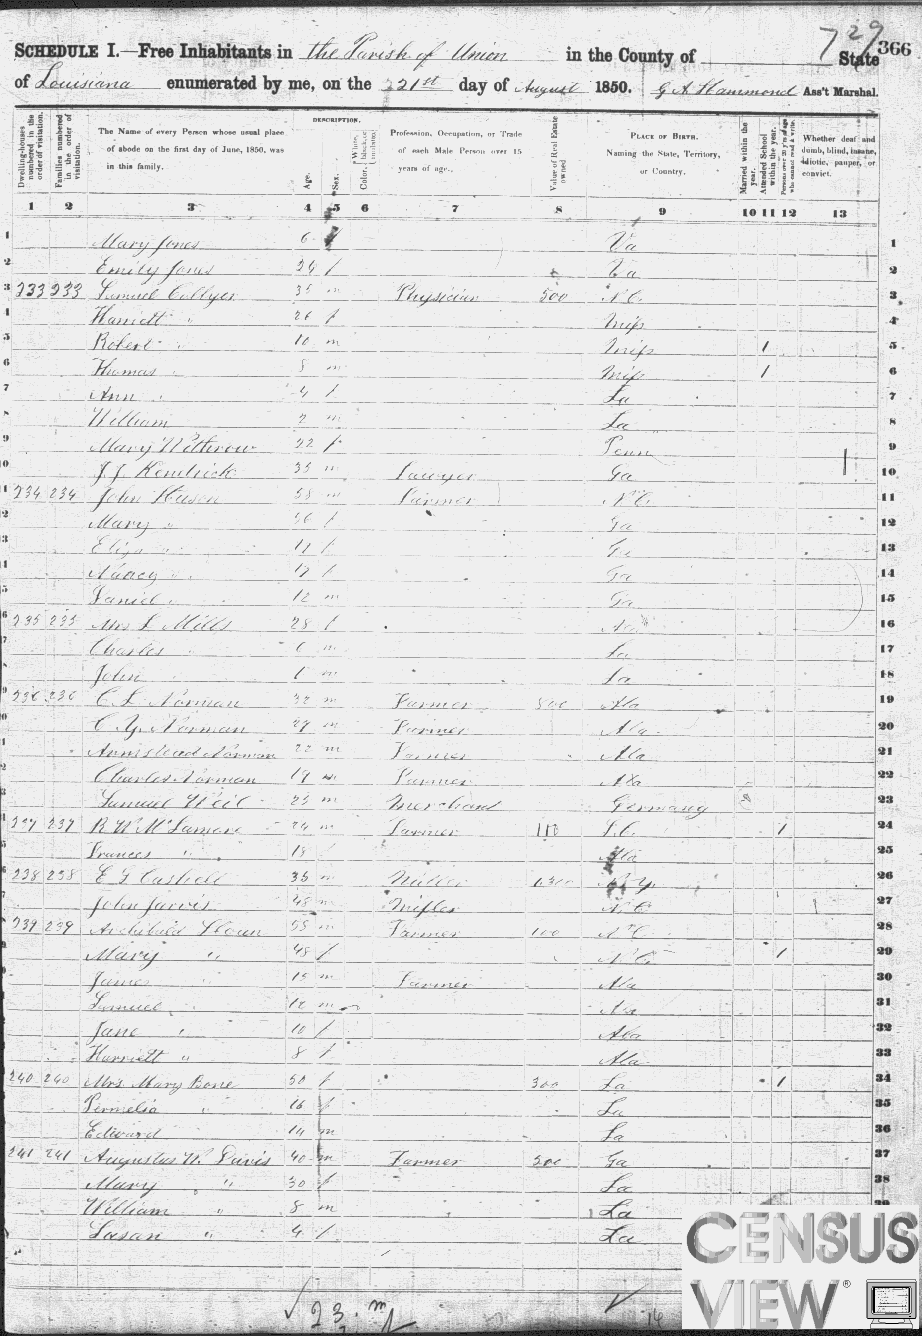 729
366
SCHEDULE I.—Free Inhabitants in the Parish of Union in the County of State
of Louisiana enumerated by me, on the 221st day of August 1850. G A Hammond Ass't Marshal.
Dwelling-houses numbered in the order of visitation.
Families numbered in the order of visitation.
The Name of every Person whose usual place of abode on the first day of June, 1850, was in this family.
DESCRIPTION.
Age.
Sex.
Color, White, black, or mulatto.
Profession, Occupation, or Trade of each Male Person over 15 years of age.
Value of Real Estate owned
PLACE OF BIRTH. Naming the State, Territory, or Country.
Married within the year.
Attended School within the year.
Persons over 20 y'rs of age who cannot read & write.
Whether deaf and dumb, blind, insane, idiotic, pauper, or convict.
1 2 3 4 5 6 7 8 9 10 11 12 13
1 Mary Jones 6 f Va 1
2 Emily Jones 24 f Va 2
3 233 233 Samuel Collyer 35 m Physician 500 N.C. 3
4 Harriett " 26 f Miss 4
5 Robert " 10 m Miss 1 5
6 Thomas " 8 m Miss 1 6
7 Ann " 4 f La 7
8 William 2 m La 8
9 Mary Withrow 22 f Penn 9
10 J. J. Kendrick 35 m Lawyer Ga 10
11 234 234 John 58 m Farmer N.C. 11
12 Mary " 56 f Ga 12
13 Eliza " 17 f Ga 13
14 Nancy " 17 f Ga 14
15 Daniel " 12 m Ga 15
16 235 235 Mrs L Mills 28 f 16
17 Charles " 6 m La 17
18 John 1 m La 18
19 236 236 C. L. Norman 32 m Farmer 800 Ala 19
20 C. Y. Norman 29 m Farmer Ala 20
21 Armstead Norman 22 m Farmer Ala 21
22 Charles Norman 19 m Farmer Ala 22
23 Samuel Weil 25 m Merchand Germany 23
24 237 237 R W McLamore 24 m Farmer 110 S.C. 1 24
25 Frances " 18 Ala 25
26 238 238 E G Cashell 35 m Miller N.Y. 26
27 John Jarvis 48 m Miller N.C. 27
28 239 239 Archibald Sloan 55 m Farmer 100 N.C. 28
29 Mary " 48 f N.C. 1 29
30 James " 15 m Farmer Ala 30
31 Samuel 12 m Ala 31
32 Jane " 10 f Ala 32
33 Harriett " 8 f Ala 33
34 240 240 Mrs Mary Bone 50 f 300 La 1 34
35 Permelia " 16 f La 35
36 Edward 14 m La 36
37 241 241 Augustus W. Davis 40 m Farmer 300 Ga 37
38 Mary " 30 f La 38
39 William " 8 m La 39
Susan " 4 f La
23 m
16
CENSUS
VIEW®